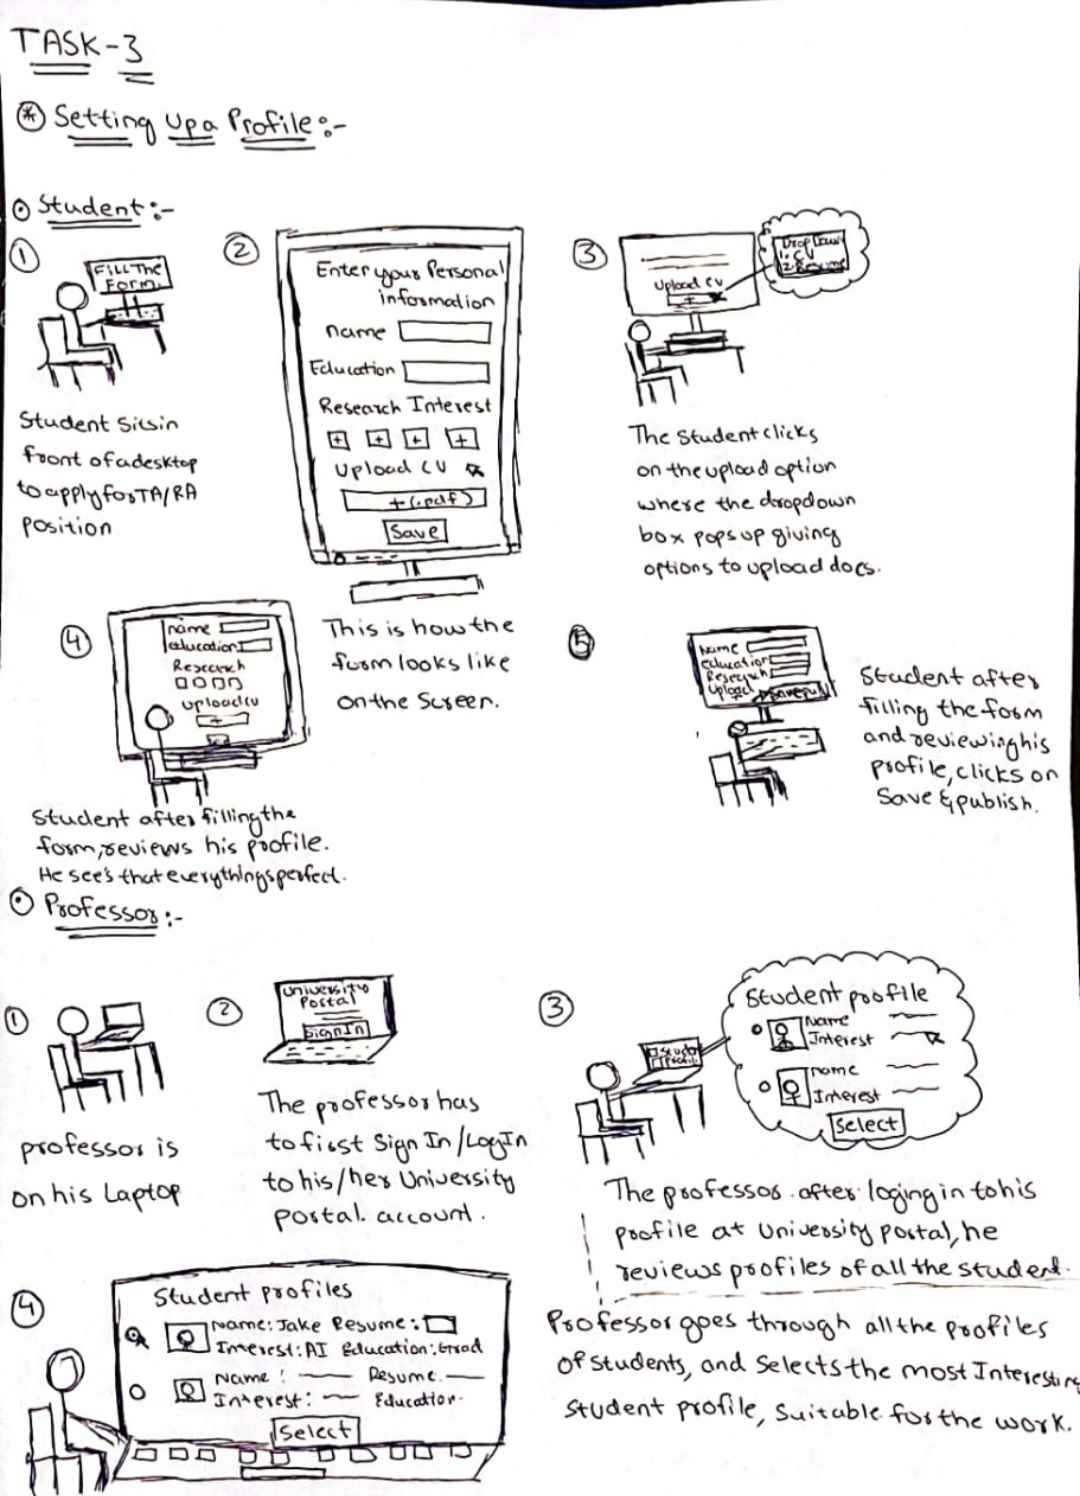 TASK-3
* Setting Up a Profile:-
Student:-
1
FILL The
Form.
Student Sits in
front of a desktop
to apply for TA/RA
position
2
Enter your Personal
information
name
Education
Research Interest
+ + + +
Upload CV
+(.pdf)
Save
This is how the
form looks like
on the Screen.
3
Upload CV
+
Drop Down
1. CV
2. Resume
The Student clicks
on the upload option
where the dropdown
box pops up giving
options to upload docs.
4
name
education
Research
Upload cv
+
Student after filling the
form, reviews his profile.
He see's that everythings perfect.
5
Name
education
Research
Upload
Student after
filling the form
and reviewing his
profile, clicks on
Save & publish.
Professor:-
1
professor is
on his Laptop
2
University
Portal
Sign In
The professor has
to first Sign In/LogIn
to his/her University
portal account.
3
Student profile
Name
Interest
name
Interest
Select
The professor after loging in to his
profile at University portal, he
reviews profiles of all the student.
4
Student profiles
Name: Jake Resume:
Interest: AI Education: Grad
Name: Resume.
Interest: Education.
Select
Professor goes through all the profiles
of students, and Selects the most Interesting
student profile, Suitable for the work.